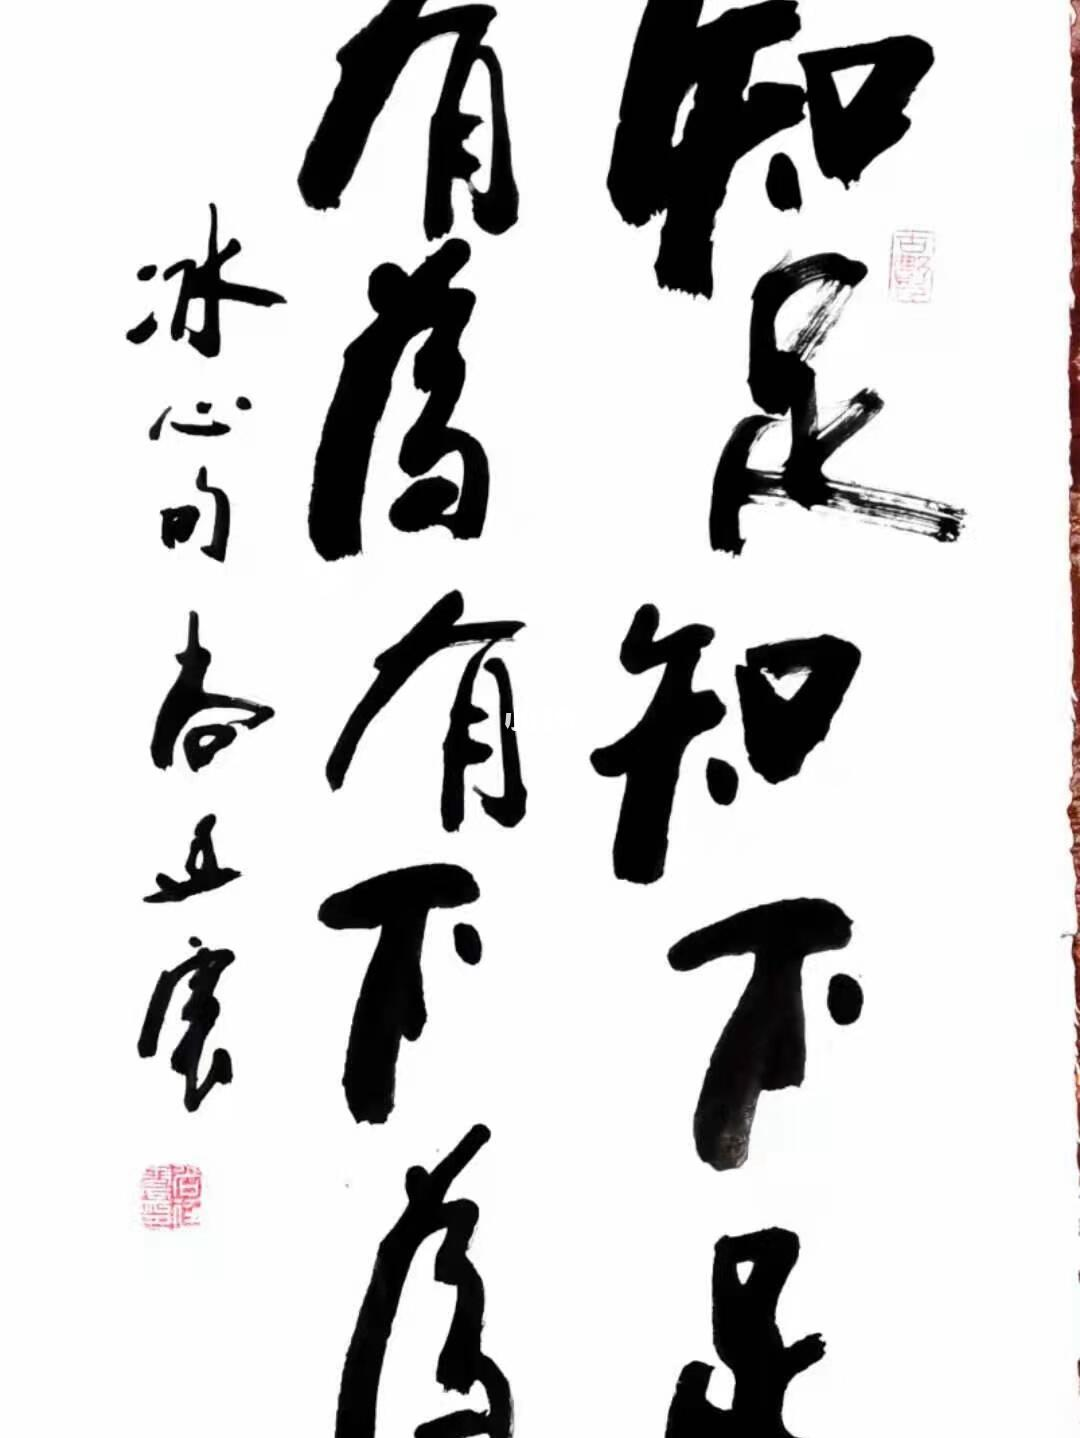 知足知不足
有為有不為
冰心句